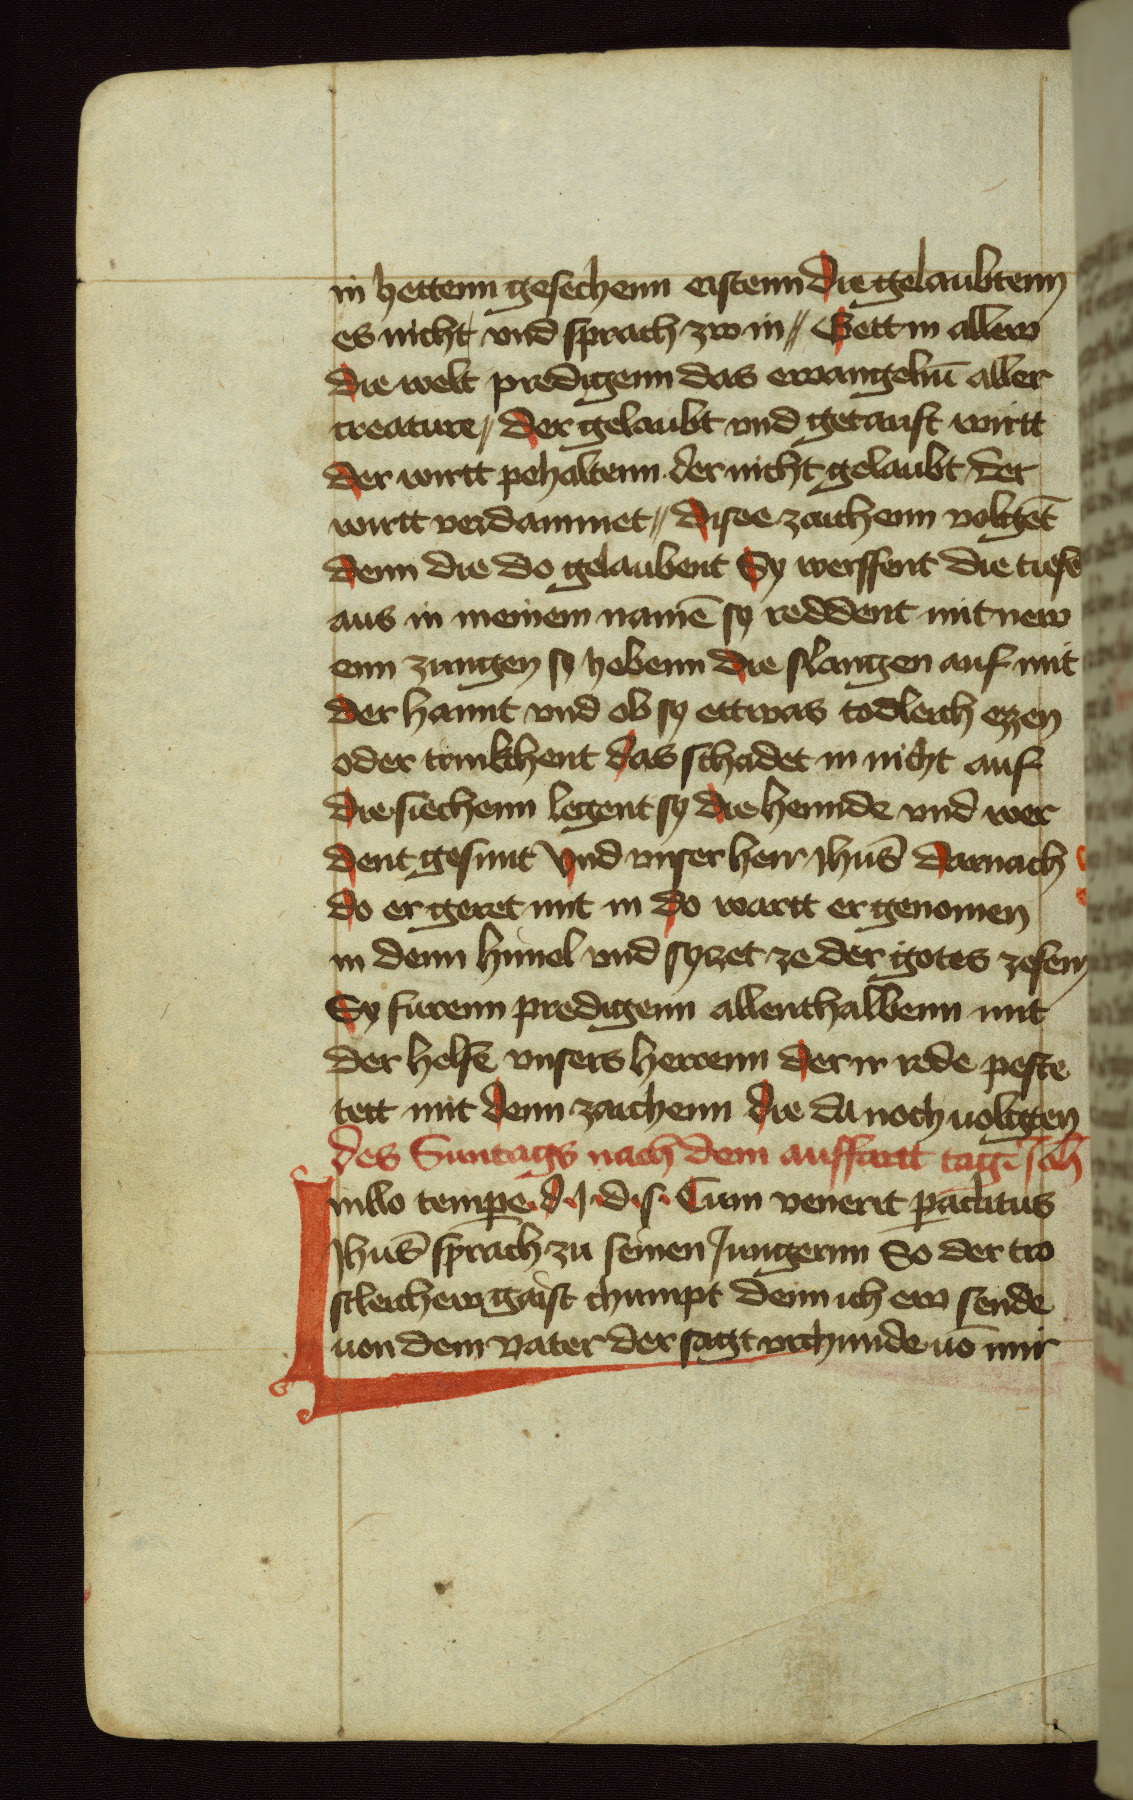 in hettenn gesechenn erstenn die gelaubtenn
es nicht vnd sprach zw in // Gett in allew
die welt predigenn das ewangeliū aller
creature // der gelaubt vnd getauft wirtt
der wirtt pehaltenn der nicht gelaubt der
wirtt verdammet // disee zaichenn volgēt
denn die do gelaubent Sy werffent die tiefl
aus in meinem namē sy reddent mit new
enn zungen sy hebenn die slangen auf mit
der hannt vnd ob sy ettwas todleich ezzen
oder trinkhent das schadet in nicht auf
die siechenn legent sy die hennde vnd wer
dent gesunt Vnd vnser herr Jhūs darnach
do er geret mit in do wartt er genomen
in denn himel vnd syzet ze der gotes zesem
Sy furenn predigenn allenthalbenn mit
der helfe vnsers herrenn der ir rede peste
tett mit denn zaichenn die da noch uolgten
des Suntags nach dem auffartt tag Joh
Inillo tempe. d. J. d. s. Cum venerit paclitus
Jhūs sprach zu seinen Jungernn So der tro
stleicher gaist chumpt denn ich ew sende
uon dem vater der sagt vrchunde uō mir